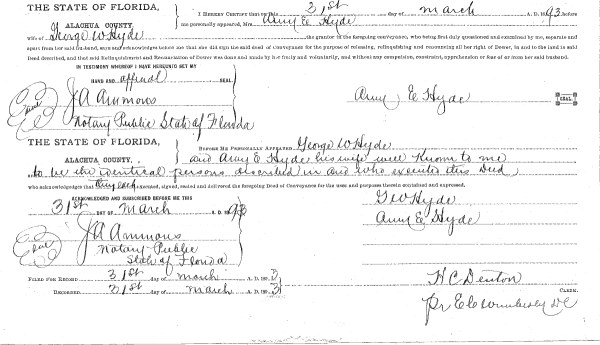 THE STATE OF FLORIDA,
ALACHUA COUNTY.
I HEREBY CERTIFY that on this 31st day of march A. D. 18 93 before
me personally appeared, Mrs. Amy E Hyde
wife of George W Hyde the grantor in the foregoing conveyance, who being first duly questioned and examined by me, separate and
apart from her said husband, says and acknowledges before me that she did sign the said deed of Conveyance for the purpose of releasing, relinquishing and renouncing all her right of Dower, in and to the land in said
Deed described, and that said Relinquishment and Renunciation of Dower was done and made by her freely and voluntarily, and without any compulsion, constraint, apprehension or fear of or from her said husband.
IN TESTIMONY WHEREOF I HAVE HEREUNTO SET MY
HAND AND official SEAL
JA Ammons
Notary Public State of Florida
Amy E Hyde
SEAL
THE STATE OF FLORIDA,
ALACHUA COUNTY.
BEFORE ME PERSONALLY APPEARED George W Hyde
and Amy E Hyde his wife well known to me
to be the identical persons described in and who executed this Deed
who acknowledges that they executed, signed, sealed and delivered the foregoing Deed of Conveyance for the uses and purposes therein contained and expressed.
ACKNOWLEDGED AND SUBSCRIBED BEFORE ME THIS
31st DAY OF march A. D. 1893
G W Hyde
Amy E Hyde
JA Ammons
Notary Public
State of Florida
FILED FOR RECORD 31st day of march A. D. 1893
RECORDED 31st day of march A. D. 1893
H C Denton CLERK.
pr E C Wimberly DC